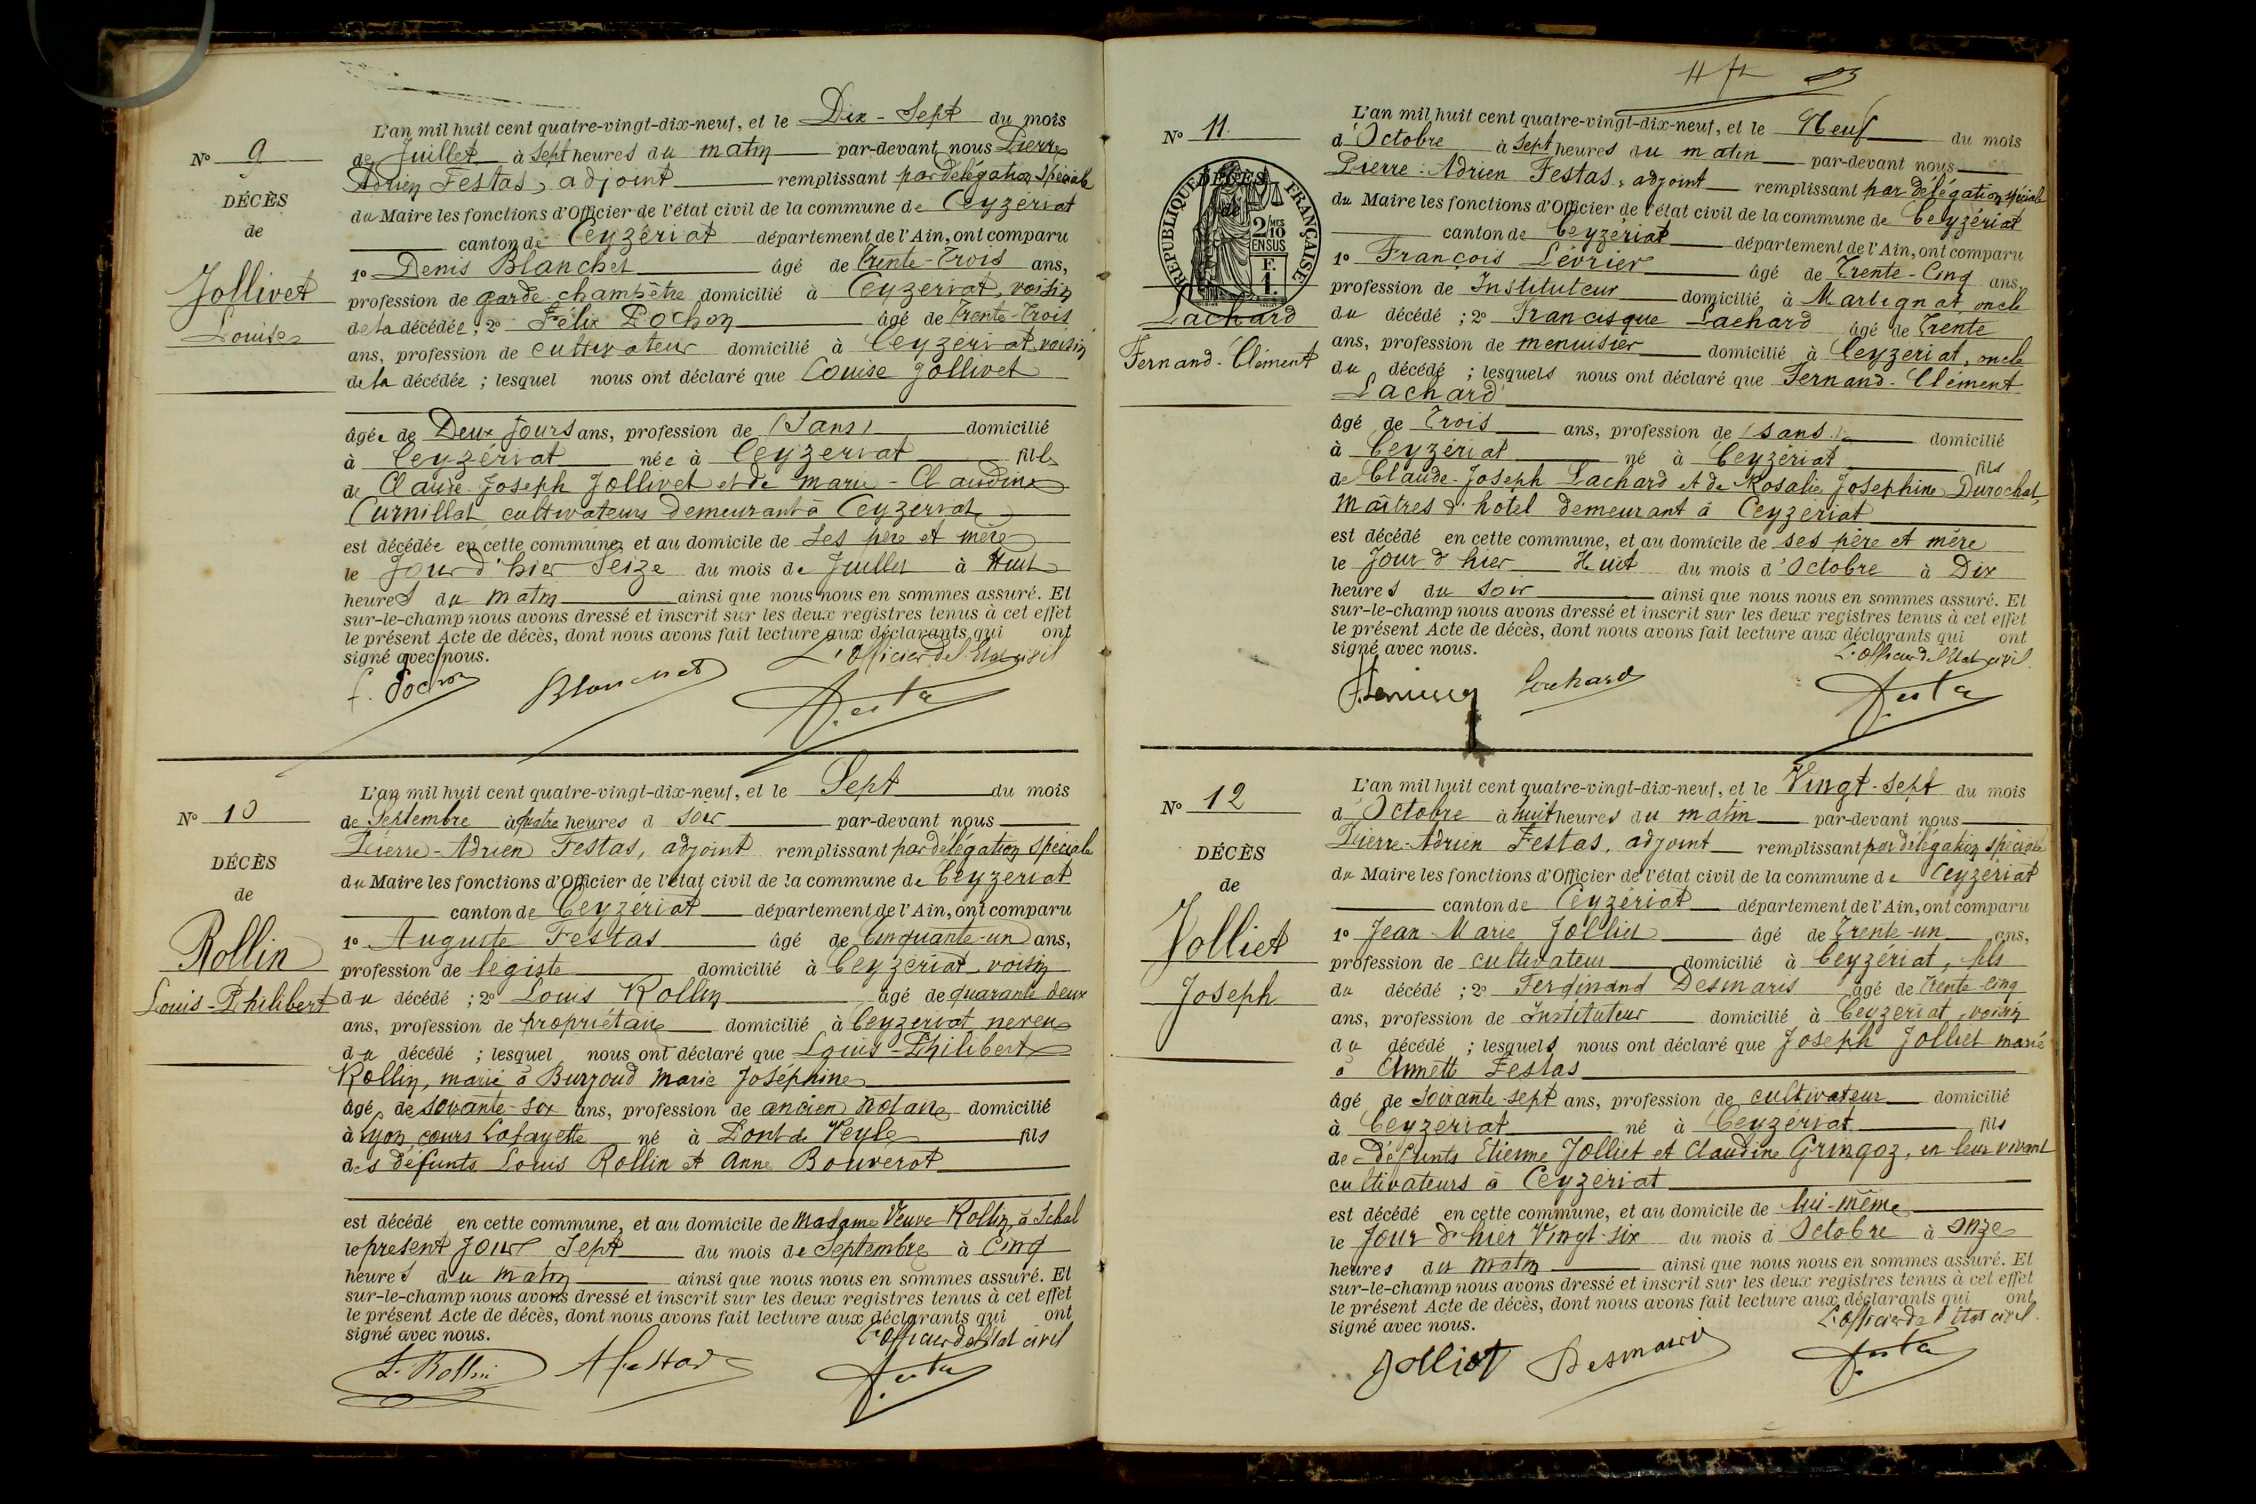 L'an mil huit cent quatre-vingt-dix-neuf, et le Dix-Sept du mois
N° 9
de Juillet à sept heures du matin par-devant nous Pierre
Adrien Festas, adjoint remplissant par délégation spéciale
DÉCÈS
du Maire les fonctions d'Officier de l'état civil de la commune de Ceyzériat
de
canton de Ceyzériat département de l'Ain, ont comparu
Jollivet
1° Denis Blanchet âgé de trente-trois ans,
profession de garde-champêtre domicilié à Ceyzeriat, voisin
Louise
de la décédée ; 2° Félix Pochon âgé de Trente-Trois
ans, profession de cultivateur domicilié à Ceyzeriat, voisin
de la décédée ; lesquel nous ont déclaré que Louise Jollivet
âgée de Deux jours ans, profession de (Sans) domicilié
à Ceyzériat née à Ceyzeriat fille
de Claude-Joseph Jollivet et de Marie-Claudine
Curnillat, cultivateurs demeurant à Ceyzeriat
est décédée en cette commune, et au domicile de ses père et mère
le jour d'hier Seize du mois de Juillet à Huit
heures du matin ainsi que nous nous en sommes assuré. Et
sur-le-champ nous avons dressé et inscrit sur les deux registres tenus à cet effet
le présent Acte de décès, dont nous avons fait lecture aux déclarants qui ont
signé avec nous.
L'officier de l'Etat civil
f. Pochon Blanchet Festas
L'an mil huit cent quatre-vingt-dix-neuf, et le Sept du mois
N° 10
de Septembre à quatre heures d soir par-devant nous
Pierre-Adrien Festas, adjoint remplissant par délégation spéciale
DÉCÈS
du Maire les fonctions d'Officier de l'état civil de la commune de Ceyzeriat
de
canton de Ceyzériat département de l'Ain, ont comparu
Rollin
1° Auguste Festas âgé de Cinquante-un ans,
profession de légiste domicilié à Ceyzériat, voisin
Louis-Philibert
du décédé ; 2° Louis Rollin âgé de quarante deux
ans, profession de propriétaire domicilié à Ceyzeriat neveu
du décédé ; lesquel nous ont déclaré que Louis-Philibert
Rollin, marié à Burjoud Marie Joséphine
âgé de soixante-six ans, profession de ancien notaire domicilié
à Lyon, cours Lafayette né à Pont de Veyle fils
des défunts Louis Rollin et Anne Bouverot
est décédé en cette commune, et au domicile de Madame Veuve Rollin, à
le présent jour Sept du mois de Septembre à Cinq
heures du matin ainsi que nous nous en sommes assuré. Et
sur-le-champ nous avons dressé et inscrit sur les deux registres tenus à cet effet
le présent Acte de décès, dont nous avons fait lecture aux déclarants qui ont
signé avec nous.
L'officier de l'état civil
L. Rollin A Festas Festas
L'an mil huit cent quatre-vingt-dix-neuf, et le Neuf du mois
N° 11
d'Octobre à sept heures du matin par-devant nous
Pierre-Adrien Festas, adjoint remplissant par délégation spéciale
DÉCÈS
de
RÉPUBLIQUE FRANÇAISE
2/10
EN SUS
F.
1.
du Maire les fonctions d'Officier de l'état civil de la commune de Ceyzériat
canton de Ceyzériat département de l'Ain, ont comparu
1° François Lévrier âgé de Trente-Cinq ans,
profession de Instituteur domicilié à Martignat, oncle
Lachard
du décédé ; 2° Francisque Lachard âgé de Trente
Fernand-Clément
ans, profession de menuisier domicilié à Ceyzeriat, oncle
du décédé ; lesquels nous ont déclaré que Fernand-Clément
Lachard
âgé de Trois ans, profession de (sans) domicilié
à Ceyzériat né à Ceyzériat fils
de Claude-Joseph Lachard et de Rosalie Josephine Durochat,
Maîtres d'hotel demeurant à Ceyzeriat
est décédé en cette commune, et au domicile de ses père et mère
le jour d'hier Huit du mois d'Octobre à Dix
heures du soir ainsi que nous nous en sommes assuré. Et
sur-le-champ nous avons dressé et inscrit sur les deux registres tenus à cet effet
le présent Acte de décès, dont nous avons fait lecture aux déclarants qui ont
signé avec nous.
L'officier de l'Etat civil.
Lachard Festas
L'an mil huit cent quatre-vingt-dix-neuf, et le Vingt-sept du mois
N° 12
d'Octobre à huit heures du matin par-devant nous
Pierre-Adrien Festas, adjoint remplissant par délégation spéciale
DÉCÈS
du Maire les fonctions d'Officier de l'état civil de la commune de Ceyzériat
de
canton de Ceyzériat département de l'Ain, ont comparu
Jolliet
1° Jean-Marie Jolliet âgé de Trente-un ans,
profession de cultivateur domicilié à Ceyzériat, fils
Joseph
du décédé ; 2° Ferdinand Desmaris âgé de trente-cinq
ans, profession de Instituteur domicilié à Ceyzeriat, voisin
du décédé ; lesquels nous ont déclaré que Joseph Jolliet marié
à Annette Festas
âgé de soixante-sept ans, profession de cultivateur domicilié
à Ceyzeriat né à Ceyzériat fils
de Défunts Etienne Jolliet et Claudine Gringoz, en leur vivant
cultivateurs à Ceyzériat
est décédé en cette commune, et au domicile de lui-même
le jour d'hier Vingt-six du mois d Octobre à onze
heures du matin ainsi que nous nous en sommes assuré. Et
sur-le-champ nous avons dressé et inscrit sur les deux registres tenus à cet effet
le présent Acte de décès, dont nous avons fait lecture aux déclarants qui ont
signé avec nous.
L'officier de l'état civil.
Jolliet Desmaris Festas